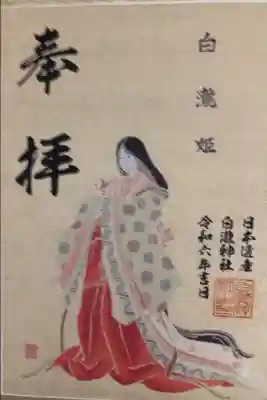 奉拝
白瀧姫
日本遺産
白瀧神社
令和六年吉日